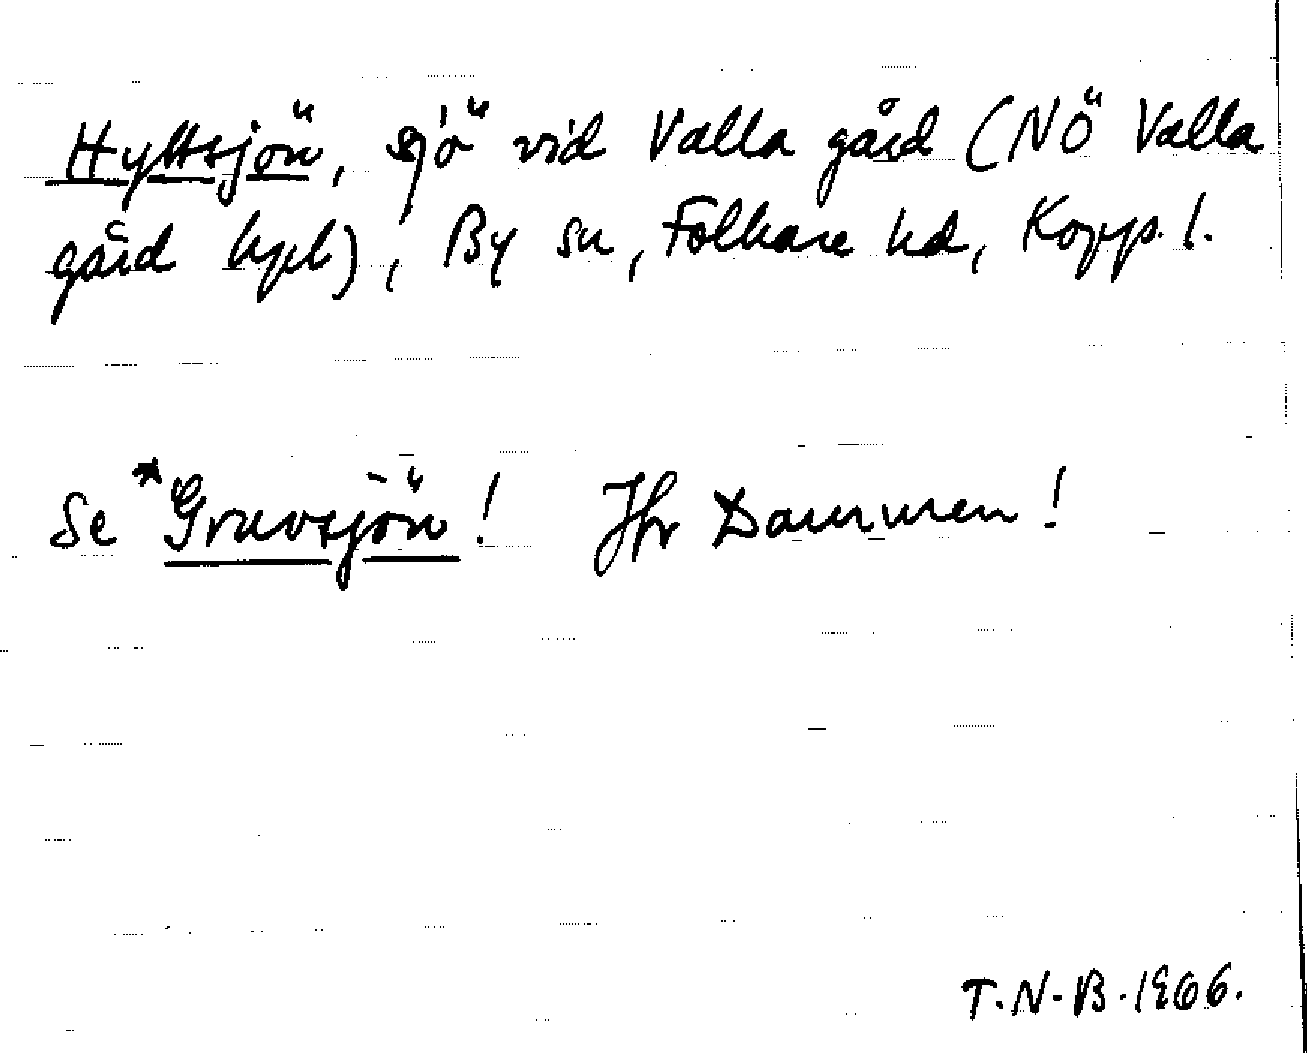 Hyttsjön, sjö vid Valla gård (NÖ Valla
gård hpl), By sn, Folkare hd, Kopp. l.
Se *Gruvsjön! Jfr Dammen!
T.N-B.1966.